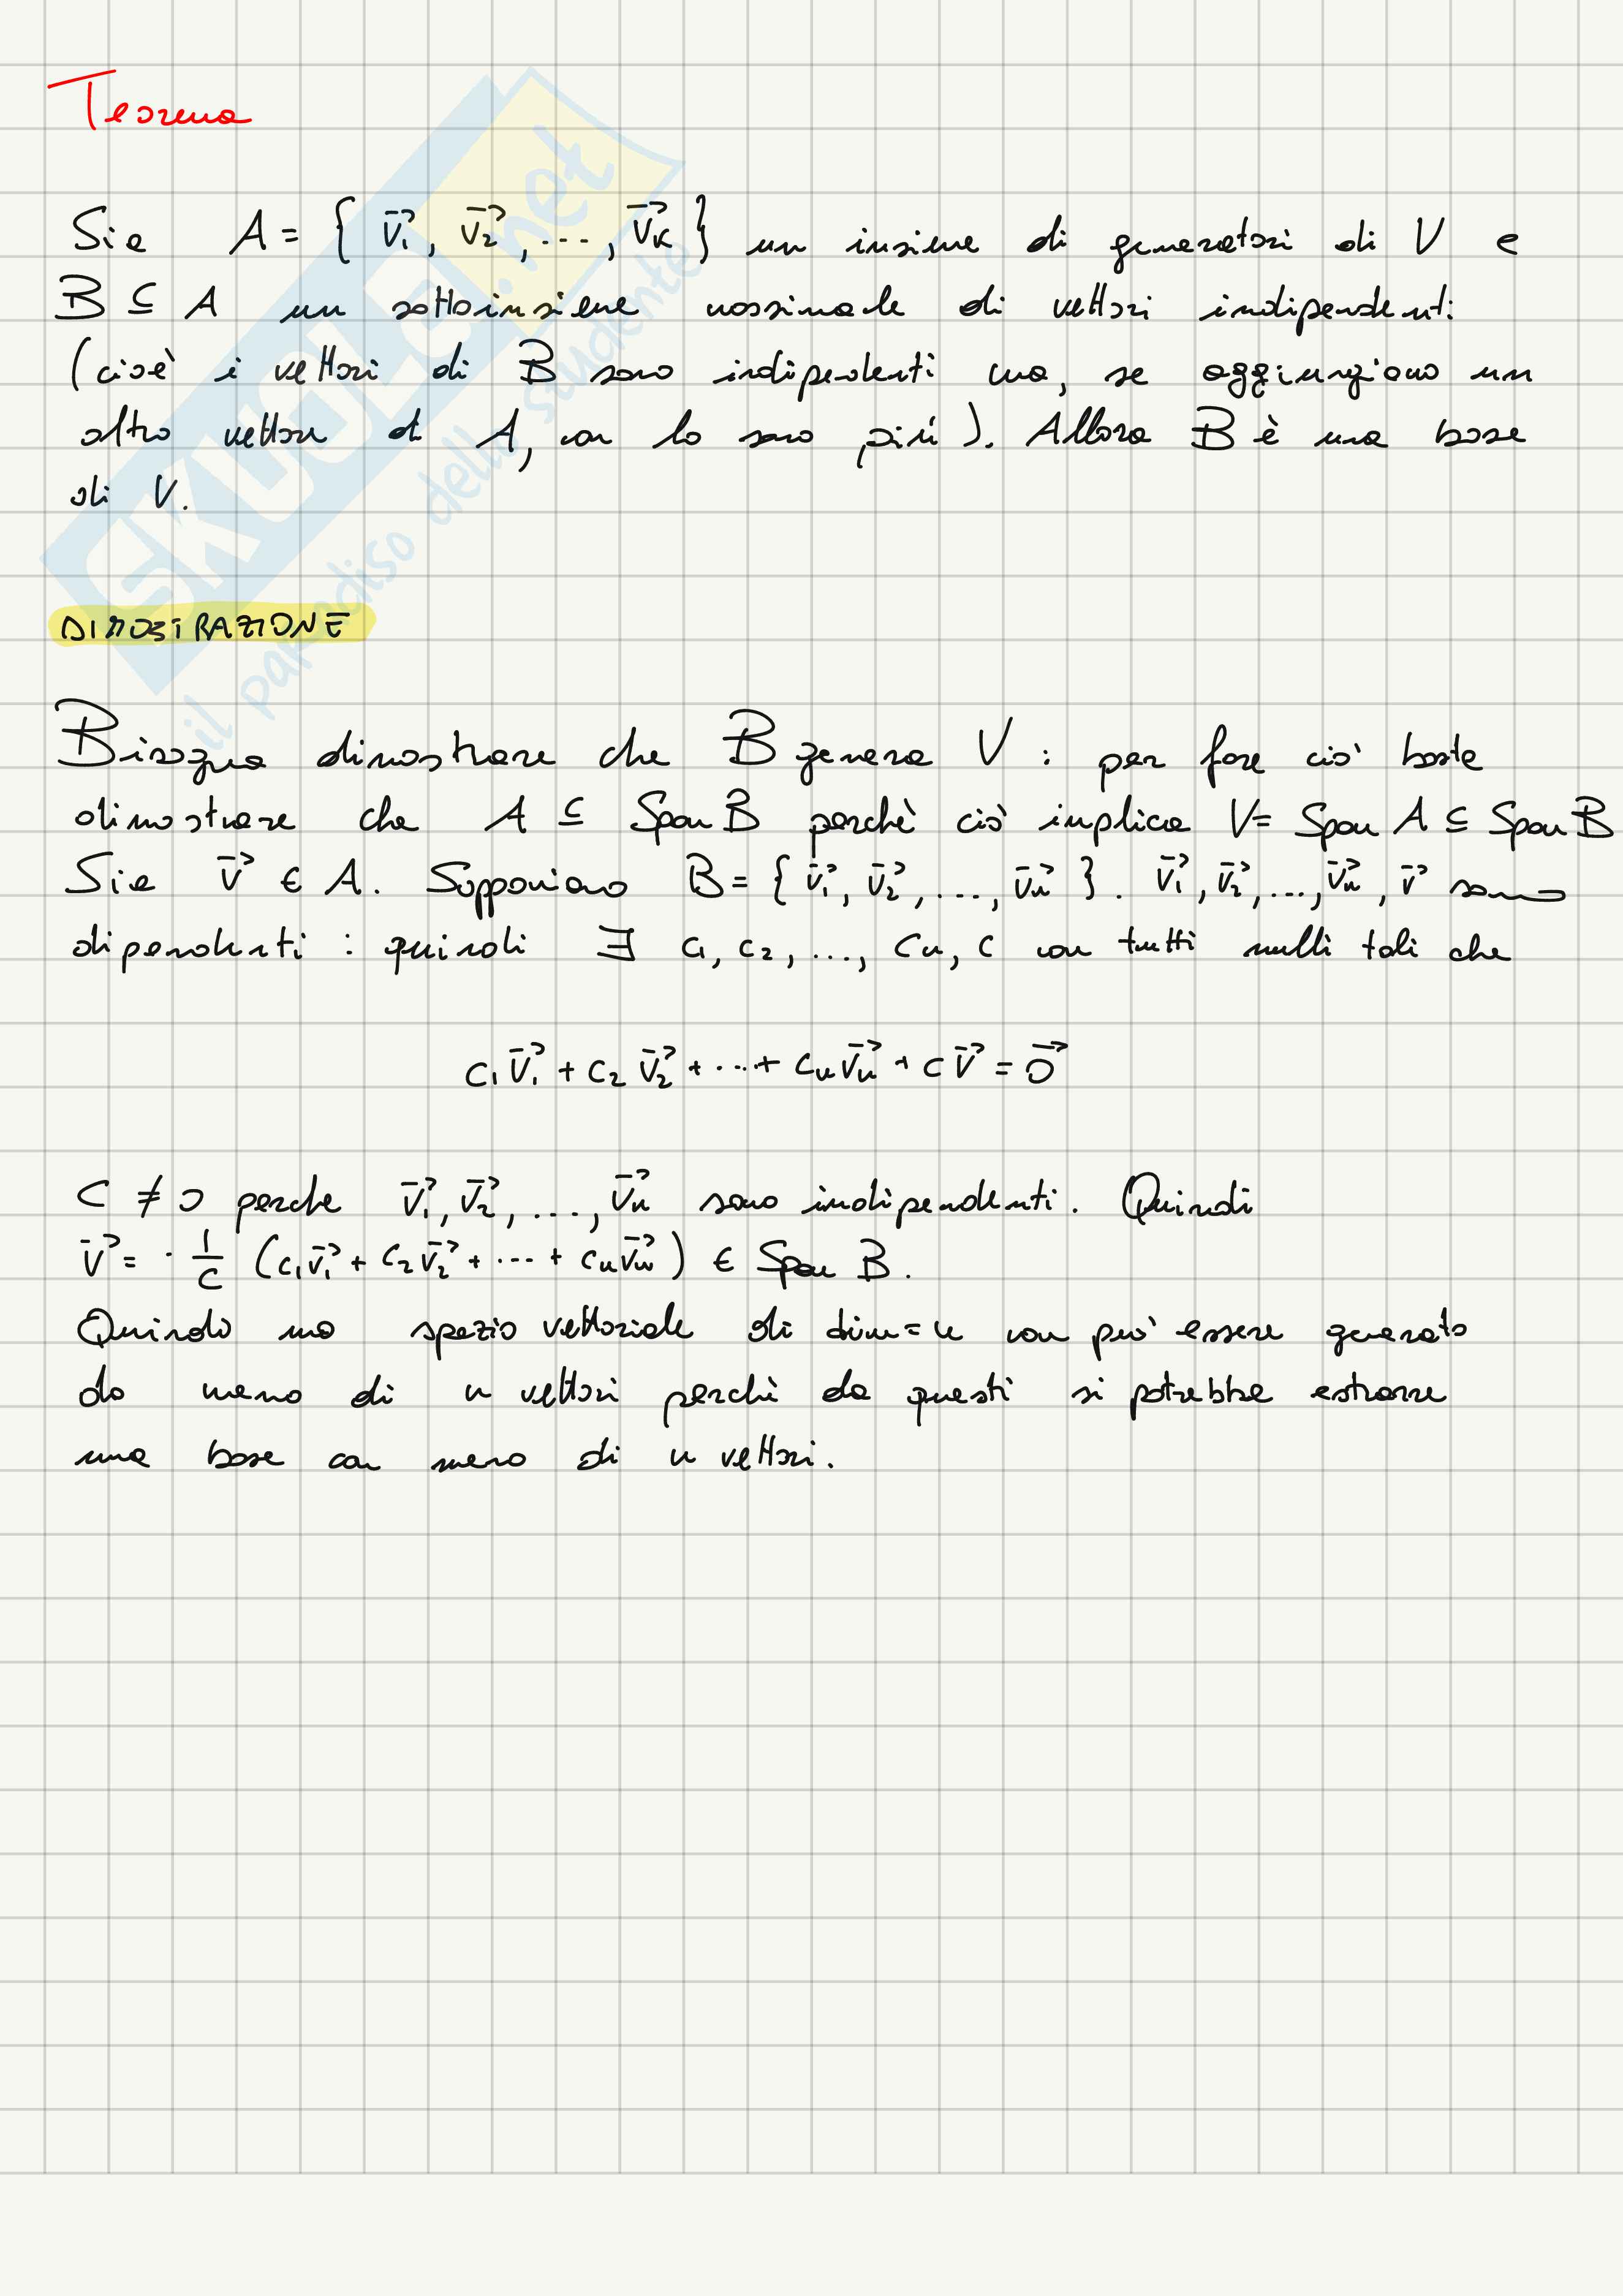 Teorema
Sia A = { v⃗₁, v⃗₂, ..., v⃗ₖ } un insieme di generatori di V e
B ⊆ A un sottoinsieme massimale di vettori indipendenti
(cioè i vettori di B sono indipendenti ma, se aggiungiamo un
altro vettore di A, non lo sono più). Allora B è una base
di V.
DIMOSTRAZIONE
Bisogna dimostrare che B genera V : per fare ciò basta
dimostrare che A ⊆ Span B perchè ciò implica V = Span A ⊆ Span B
Sia v⃗ ∈ A. Supponiamo B = { v⃗₁, v⃗₂, ..., v⃗ₙ }. v⃗₁, v⃗₂, ..., v⃗ₙ, v⃗ sono
dipendenti : quindi ∃ c₁, c₂, ..., cₙ, c non tutti nulli tali che
c₁v⃗₁ + c₂v⃗₂ + ... + cₙv⃗ₙ + cv⃗ = 0⃗
C ≠ 0 perche v⃗₁, v⃗₂, ..., v⃗ₙ sono indipendenti. Quindi
v⃗ = - 1/c (c₁v⃗₁ + c₂v⃗₂ + ... + cₙv⃗ₙ) ∈ Span B.
Quindi uno spazio vettoriale di dim = n non può essere generato
da meno di n vettori perchè da questi si potrebbe estrarre
una base con meno di n vettori.
SKUOLA.net
il paradiso dello studente